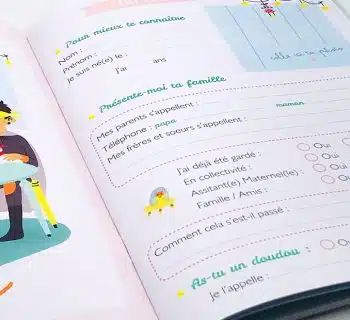 Pour mieux te connaître
Nom :
Prénom :
Je suis né(e) le :
J'ai ans
colle ici ta photo
Présente-moi ta famille
Mes parents s'appellent :
Téléphone : papa maman
Mes frères et soeurs s'appellent :
J'ai déjà été gardé :
En collectivité : Oui
Assitant(e) Maternel(le) : Oui
Famille / Amis : Oui
Comment cela s'est-il passé :
As-tu un doudou : Oui
Je l'appelle :